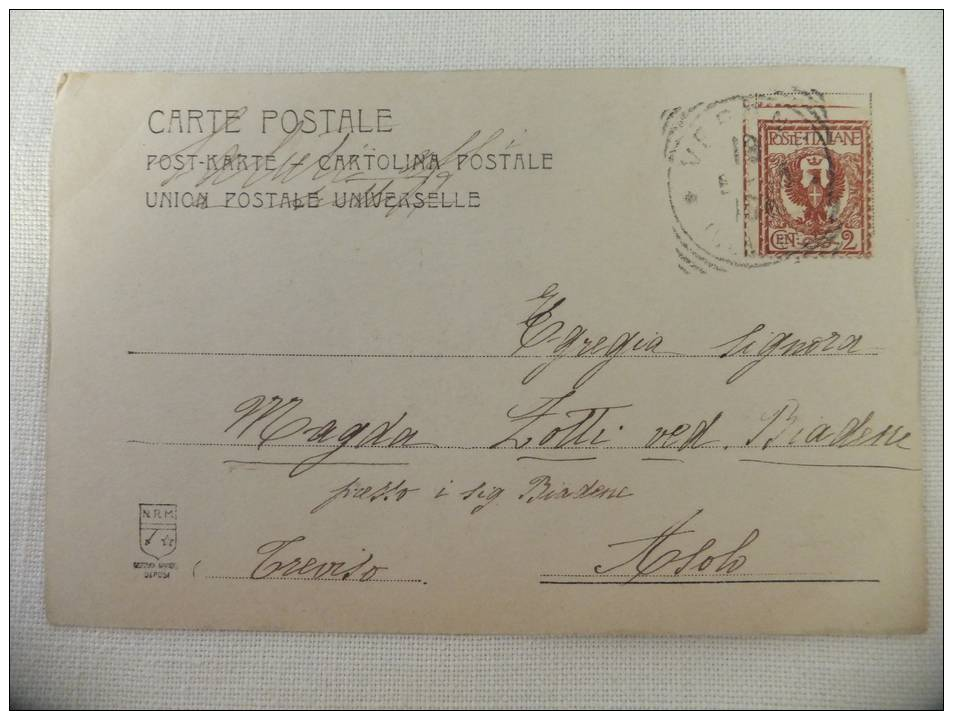 CARTE POSTALE
POST-KARTE - CARTOLINA POSTALE
UNION POSTALE UNIVERSELLE
POSTE·ITALIANE
CEN. 2
Egregia signora
Magda Zotti ved. Biadene
presso i sig Biadene
(Treviso Asolo
N.R.M.